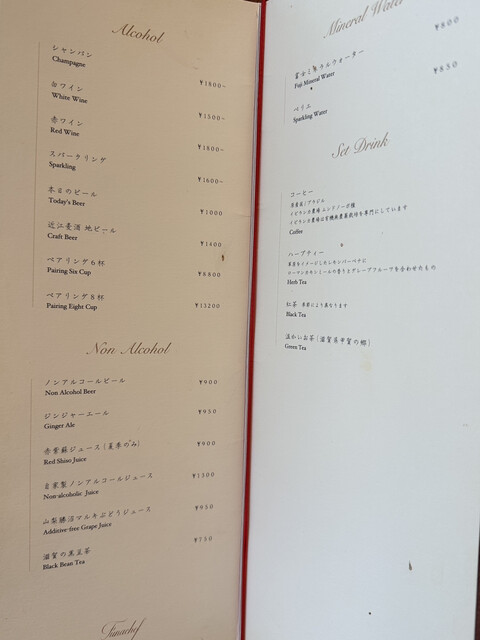 Alcohol
シャンパン
Champagne
¥1800~
白ワイン
White Wine
¥1500~
赤ワイン
Red Wine
¥1800~
スパークリング
Sparkling
¥1600~
本日のビール
Today's Beer
¥1000
近江麦酒 地ビール
Craft Beer
¥1400
ペアリング6杯
Pairing Six Cup
¥8800
ペアリング8杯
Pairing Eight Cup
¥13200
Non Alcohol
ノンアルコールビール
Non Alcohol Beer
¥900
ジンジャーエール
Ginger Ale
¥950
赤紫蘇ジュース(夏季のみ)
Red Shiso Juice
¥900
自家製ノンアルコールジュース
Non-alcoholic Juice
¥1300
山梨勝沼マルキぶどうジュース
Additive-free Grape Juice
¥950
滋賀の黒豆茶
Black Bean Tea
¥750
Funachef
Mineral Water
¥800
富士ミネラルウォーター
Fuji Mineral Water
¥850
ペリエ
Sparkling Water
Set Drink
コーヒー
原産国/ブラジル
Coffee
ハーブティー
Herb Tea
紅茶 季節により異なります
Black Tea
温かいお茶(滋賀県甲賀の郷)
Green Tea